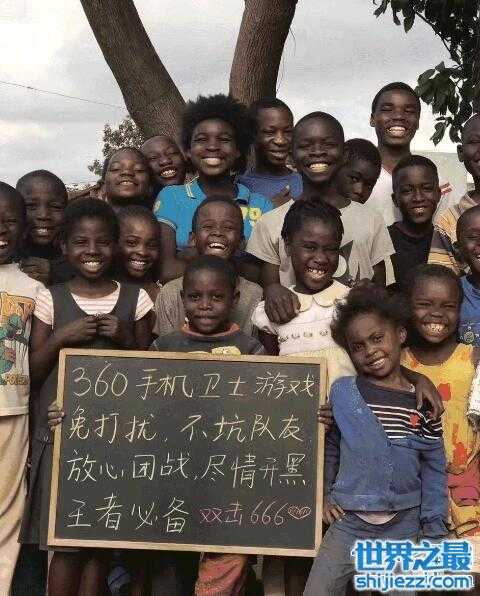 360手机卫士游戏
免打扰，不坑队友
放心团战，尽情开黑
王者必备 双击666
世界之最
shijiezzi.com